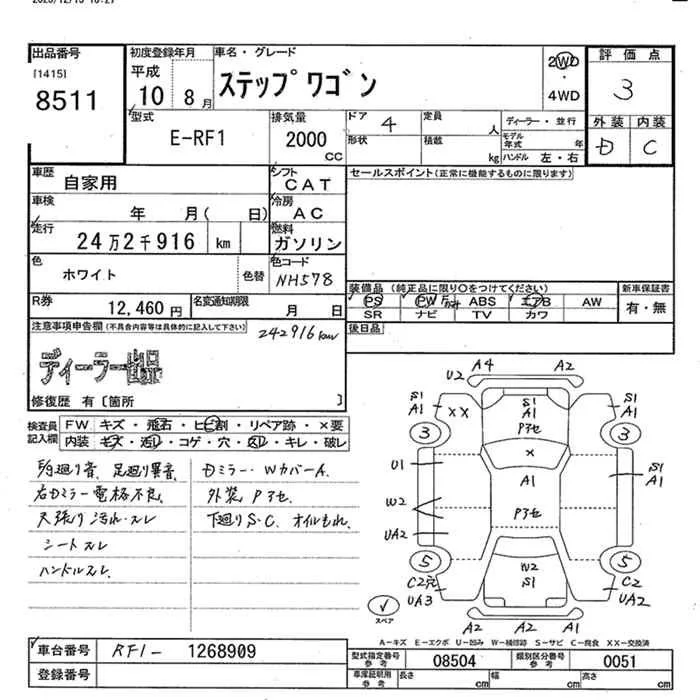 出品番号
[1415]
8511
初度登録年月
平成
10 8月
車名・グレード
ステップワゴン
2WD
・
4WD
評価点
3
外装 内装
D C
型式
E-RF1
排気量
2000
CC
ドア 4
形状
定員
人
積載
kg
ディーラー・並行
モデル
年式 年
ハンドル 左・右
車歴
自家用
シフト
CAT
セールスポイント(正常に機能するものに限ります)
車検
年 月( 日)
冷房
AC
走行
24万2千916 km
燃料
ガソリン
色
ホワイト
色替
色コード
NH578
装備品 (純正品に限り○をつけてください)
PS PW ABS エアB AW
SR ナビ TV カワ
新車保証書
有・無
R券
12,460円
名変通知期限
月 日
後日品
注意事項申告欄(不具合内容等は具体的に記入して下さい)
242916km
ディーラー出品
修復歴 有〔箇所 〕
検査員
記入欄
FW キズ・飛石・ヒビ割・リペア跡・×要
内装 キズ・汚れ・コゲ・穴・スレ・キレ・破レ
足廻り異音
右Dミラー電格不良
天張り汚れ・スレ
シートスレ
ハンドルスレ
Dミラー-WカバーA.
外装Pヌセ
下廻りS.C. オイルもれ
U2 A4 A2
S1
A1
XX
S1
A1
Pヌセ
S1
A1
3 3
×
U1
A1
S1
A1
W2
Pヌセ
UA2
5 5
W2
S1
C2穴
UA3
C2
UA2
スペア
A2 A2 A1
A-キズ E-エクボ U-凹み W-補修跡 S-サビ C-腐食 XX-交換済
車台番号
RF1- 1268909
型式指定番号
参考
08504
類別区分番号
参考
0051
登録番号
車庫証明用
参考
長さ cm
幅 cm
高さ cm